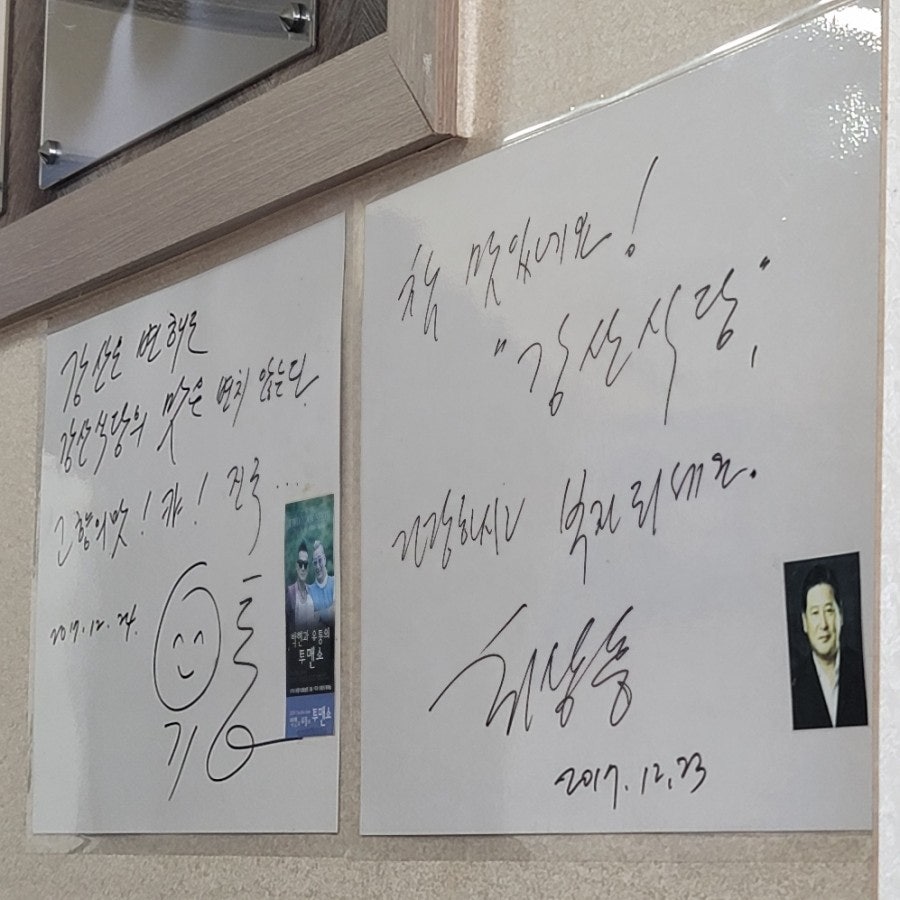 강산은 변해도
강산식당의 맛은 변치 않는다
고향의맛! 캬! 진국....
2017.12.24.
박현과 유퉁의
투맨쇼
투맨쇼
참 맛있네요!
"강산식당"
건강하시고
2017.12.23